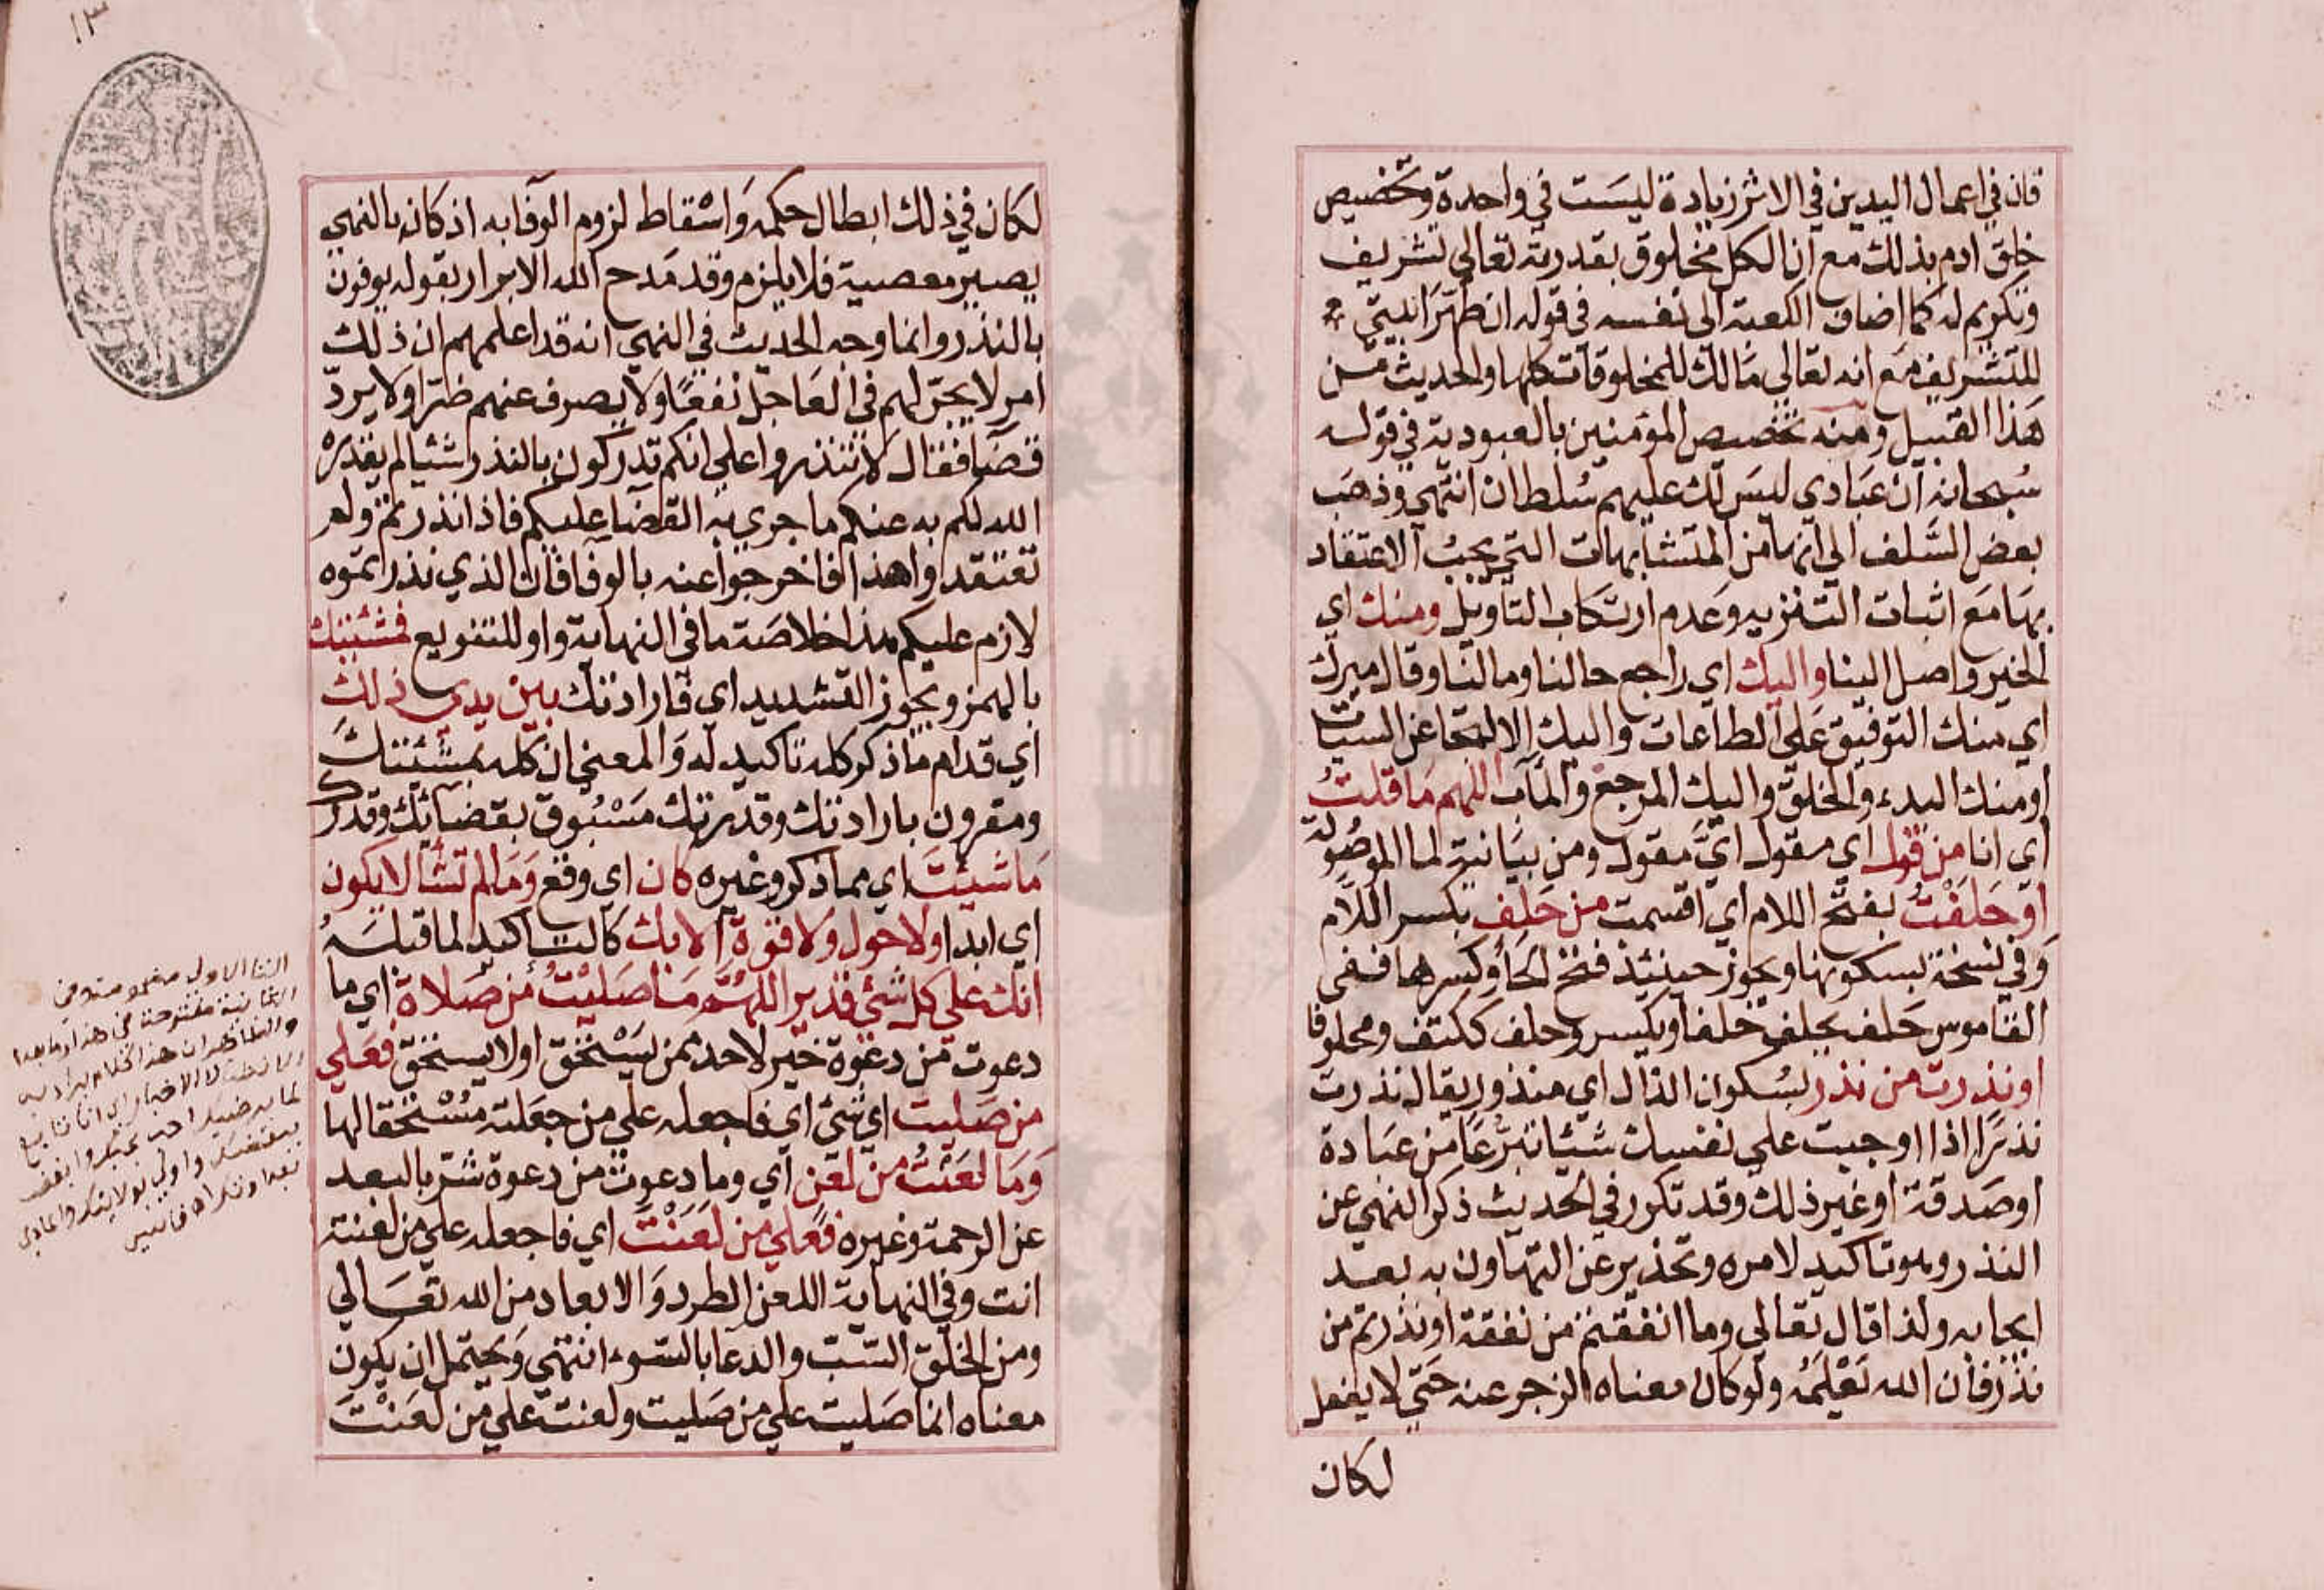 فان في اعمال اليدين في الاثر زيادة ليست في واحدة وتخصيص
خلق ادم بذلك مع ان الكل مخلوق بقدرته تعالي تشريف
وتكريم له كما اضاف الكعبة الى نفسه في قوله ان طهرا بيتي
للتشريف مع انه تعالي مالك للمخلوقات كلها والحديث من
هذا القبيل ومنه تخصيص المؤمنين بالعبودية في قوله
سبحانه ان عبادي ليس لك عليهم سلطان انتهى وذهب
بعض السلف الي انها من المتشابهات التي يجب الاعتقاد
بها مع اثبات التنزيه وعدم ارتكاب التاويل ومنك اي
الخير واصل الينا واليك اي راجع حالنا ومالنا وقال ميرك
اي منك التوفيق على الطاعات واليك الالتجا عن السيئات
او منك البدء والخلق واليك المرجع والمآب اللهم ما قلت
اي انا من قول اي مقول اي مقول ومن بيانية لما الموصولة
او حلفت بفتح اللام اي اقسمت من حلف بكسر اللام
وفي نسخة بسكونها ويجوز حينئذ فتح الحا وكسرها ففي
القاموس حلف يحلف حلفا ويكسر وحلف ككتف ومحلوفا
او نذرت من نذر بسكون الذال اي منذور يقال نذرت
نذرا اذا اوجبت علي نفسك شيئا تبرعا من عبادة
او صدقة او غير ذلك وقد تكرر في الحديث ذكر النهي عن
النذر وهو تاكيد لامره وتحذير عن التهاون به بعد
ايجابه ولذا قال تعالي وما انفقتم من نفقة او نذرتم من
نذر فان الله يعلمه ولو كان معناه الزجر عنه حتي لا يفعل
لكان
لكان في ذلك ابطال حكمه واسقاط لزوم الوفا به اذ كان بالنهي
يصير معصية فلا يلزم وقد مدح الله الابرار بقوله يوفون
بالنذر وانما وجه الحديث في النهي انه قد اعلمهم ان ذلك
امر لا يجر لهم في العاجل نفعا ولا يصرف عنهم ضرا ولا يرد
قضا فقال لا تنذروا علي انكم تدركون بالنذر شيئا لم يقدره
الله لكم به عنكم ما جري به القضا عليكم فاذا نذرتم ولم
تعتقدوا هذا فاخرجوا عنه بالوفا فان الذي نذرتموه
لازم عليكم هذا خلاصة ما في النهاية واو للتنويع فمشيئتك
بالهمز ويجوز التشديد اي فارادتك بين يدي ذلك
اي قدام ما ذكر كله تاكيد له والمعني ان كله بمشيئتك
ومقرون بارادتك وقدرتك مسبوق بقضائك وقدرك
ما شيئت اي مما ذكر وغيره كان اي وقع وما لم تشا لا يكون
اي ابدا ولا حول ولا قوة الا بك كالتاكيد لما قبله
انك علي كل شئ قدير اللهم ما صليت من صلاة اي ما
دعوت من دعوة خير لاحد ممن يستحق او لا يستحق فعلي
من صليت اي شئ اي فاجعله علي من جعلته مستحقا لها
وما لعنت من لعن اي وما دعوت من دعوة شر بالبعد
عن الرحمة وغيره فعلي من لعنت اي فاجعله علي من لعنته
انت وفي النهاية اللعن الطرد والابعاد من الله تعالي
ومن الخلق السب والدعا بالسوء انتهي ويحتمل ان يكون
معناه انما صليت علي من صليت ولعنت علي من لعنت
التا الاولى مضمومة من
الثانية مفتوحة في هذا وما بعدا
والظاهر ان هذا الكلام يراد به